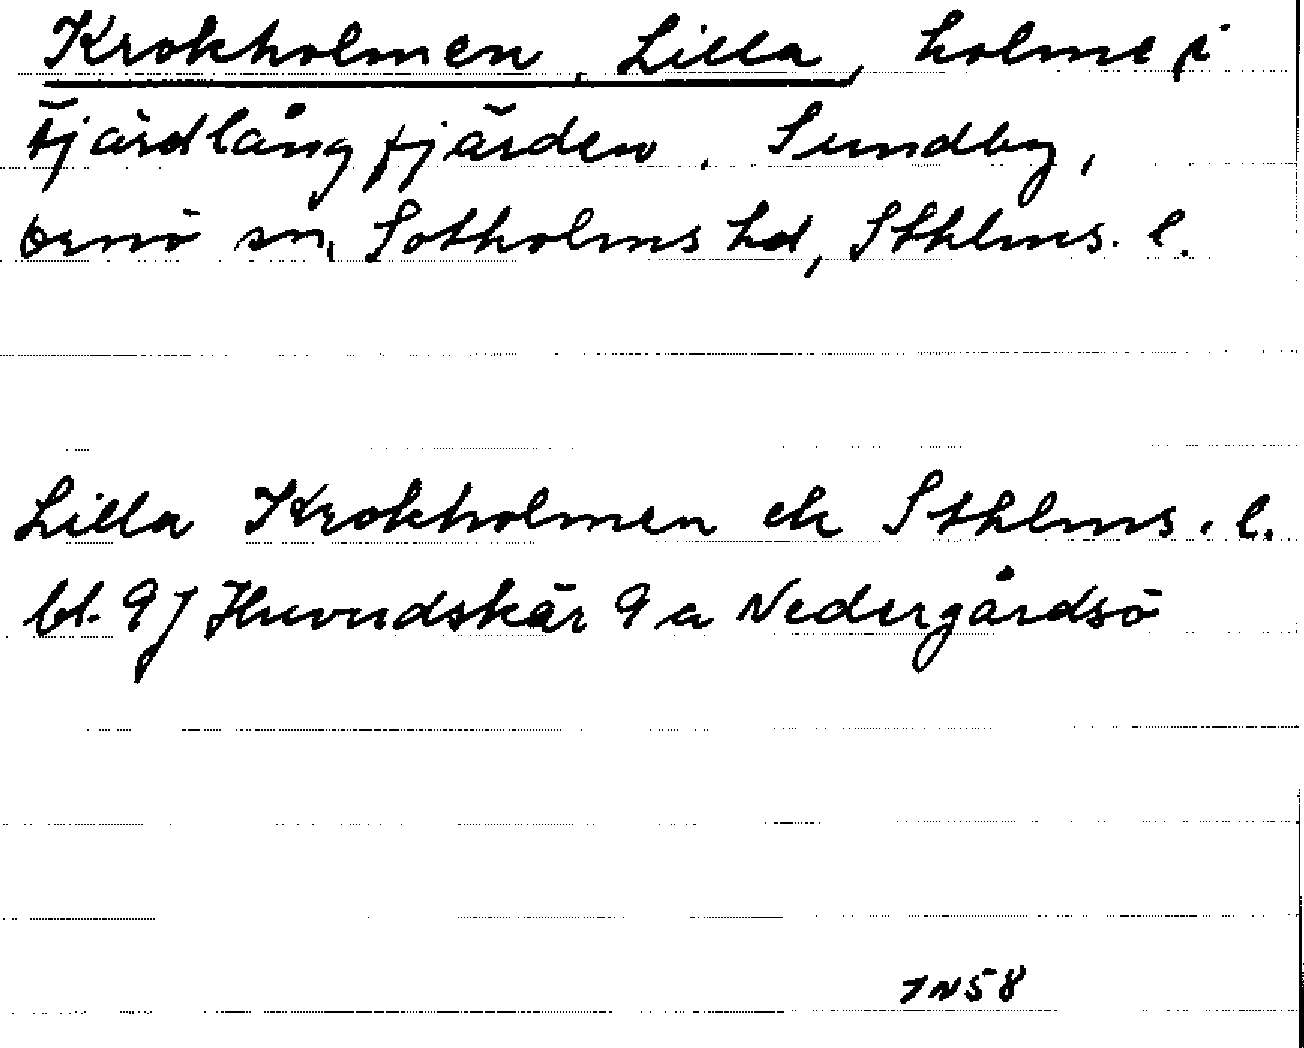 Krokholmen, Lilla, holme i
Fjärdlångfjärden, Sundby,
Ornö sn, Sotholms hd, Sthlms. l.
Lilla Krokholmen ek Sthlms. l.
bl. 9J Huvudskär 9 a Nedergårdsö
IN58